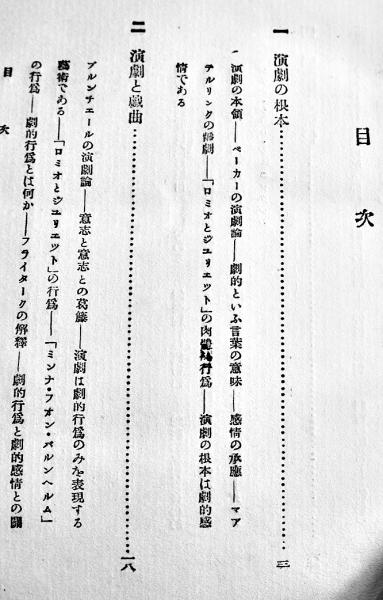 目次
一 演劇の根本……三
演劇の本領——ベーカーの演劇論——劇的といふ言葉の意味——感情の承應——マア
テルリンクの靜劇——「ロミオとジユリエット」の肉體的行爲——演劇の根本は劇的感
情である
二 演劇と戯曲……一八
ブルンチエールの演劇論——意志と意志との葛藤——演劇は劇的行爲のみを表現する
藝術である——「ロミオとジユリエット」の行爲——「ミンナ・フォン・バルンヘルム」
の行爲——劇的行爲とは何か——フライタークの解釋——劇的行爲と劇的感情との關
目次